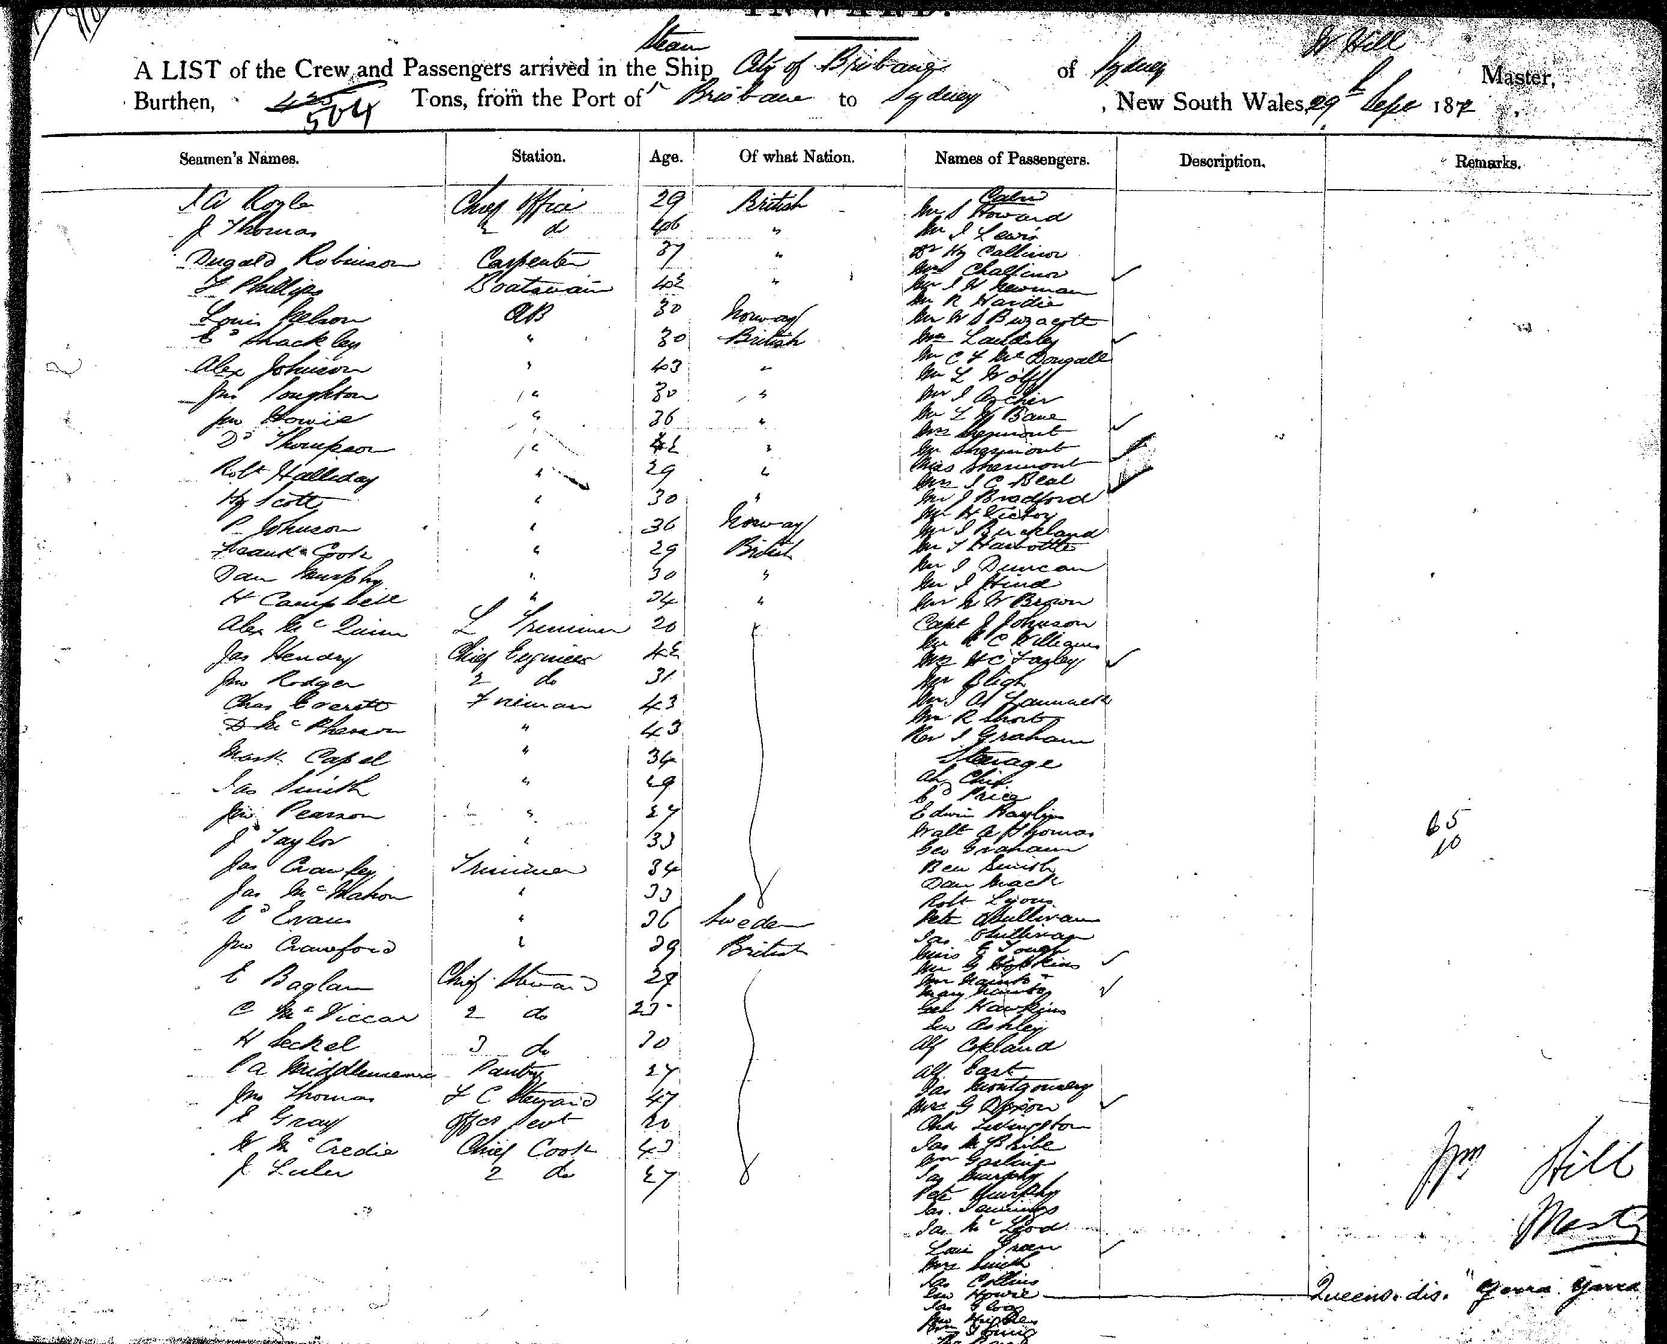 INWARD.
Steam
W Hill
A LIST of the Crew and Passengers arrived in the Ship City of Brisbane of Sydney Master,
Burthen, 504 Tons, from the Port of Brisbane to Sydney, New South Wales, 29th Sept 187
Seamen's Names. Station. Age. Of what Nation. Names of Passengers. Description. Remarks.
Royle Chief Office 29 British
J Thomas 2 do 46 "
Dugald Robinson Carpenter 37 "
Phillips Boatswain 42 "
Louis Nelson AB 30 Norway
Ed Mackley " 30 British
Alex Johnson " 43 "
Jno Houghton " 30 "
Jno Howie " 36 "
Dd Thompson " 42 "
Robt Halliday " 29 "
Hy Scott " 30 "
P Johnson " 36 Norway
Frank Cook " 29 British
Dan Murphy " 30 "
H Campbell " 34 "
Alex McQuinn L Trimmer 20
Jas Hendry Chief Engineer 42
Jno Rodger 2 do 31
Chas Everett Fireman 43
D McPherson " 43
Mark Capel " 34
Jas Smith " 29
Jno Pearson " 27
J Taylor " 33
Jas Crawley Trimmer 34
Jas McMahon " 33
Ed Evans " 36 Sweden
Jno Crawford " 39 British
E Baglan Chief Steward 29
C McViccar 2 do 23
H Seckel 3 do 30
P A Middlemena Pantry 27
Jno Thomas F C Steward 47
E Gray Offcs Servt 20
W McCredie Chief Cook 43
J Luler 2 do 27
Cabin
Mr S Howard
Mr J Lewis
Dr Hy Callinor
Mrs Challinor
Mr J W Newman
Mr R Hardie
Mr W S Buzacott
Mrs Lauldsley
Mr C F McDougall
Mr L Wolff
Mr J Archer
Mr L W Bane
Mrs Shermont
Mr Shermont
Miss Shermont
Mrs J C Beal
Mr J Bradford
Mr H Victor
Mr J Buckland
Mr T Harbottle
Mr J Duncan
Mr J Hind
Mr W Brown
Capt J Johnson
Mr H C Williams
Mrs H C Farley
Mr Bligh
Mr J A
Mr R Short
Rev J Graham
Steerage
Ah Chip
Ed Price
Edwin
Walt A Thomas
Geo Graham
Ben Smith
Dan Mack
Robt Lyons
Pete OSullivan
Jas OSullivan
Miss E Tough
Mr G Hopkins
Mary
Geo Hawkins
Ashley
Alf Copland
Alf East
Jas Montgomery
Mrs G Dixon
Chas Livingston
Jas McPhile
Wm Gosling
Jas Murphy
Pete Murphy
Jas Jennings
Jas McLeod
Green
Mrs Smith
Jas Collins
Howie
Jno Hughes
Young
65
10
Jno Hill
Master
Queens. dis. "Yarra Yarra